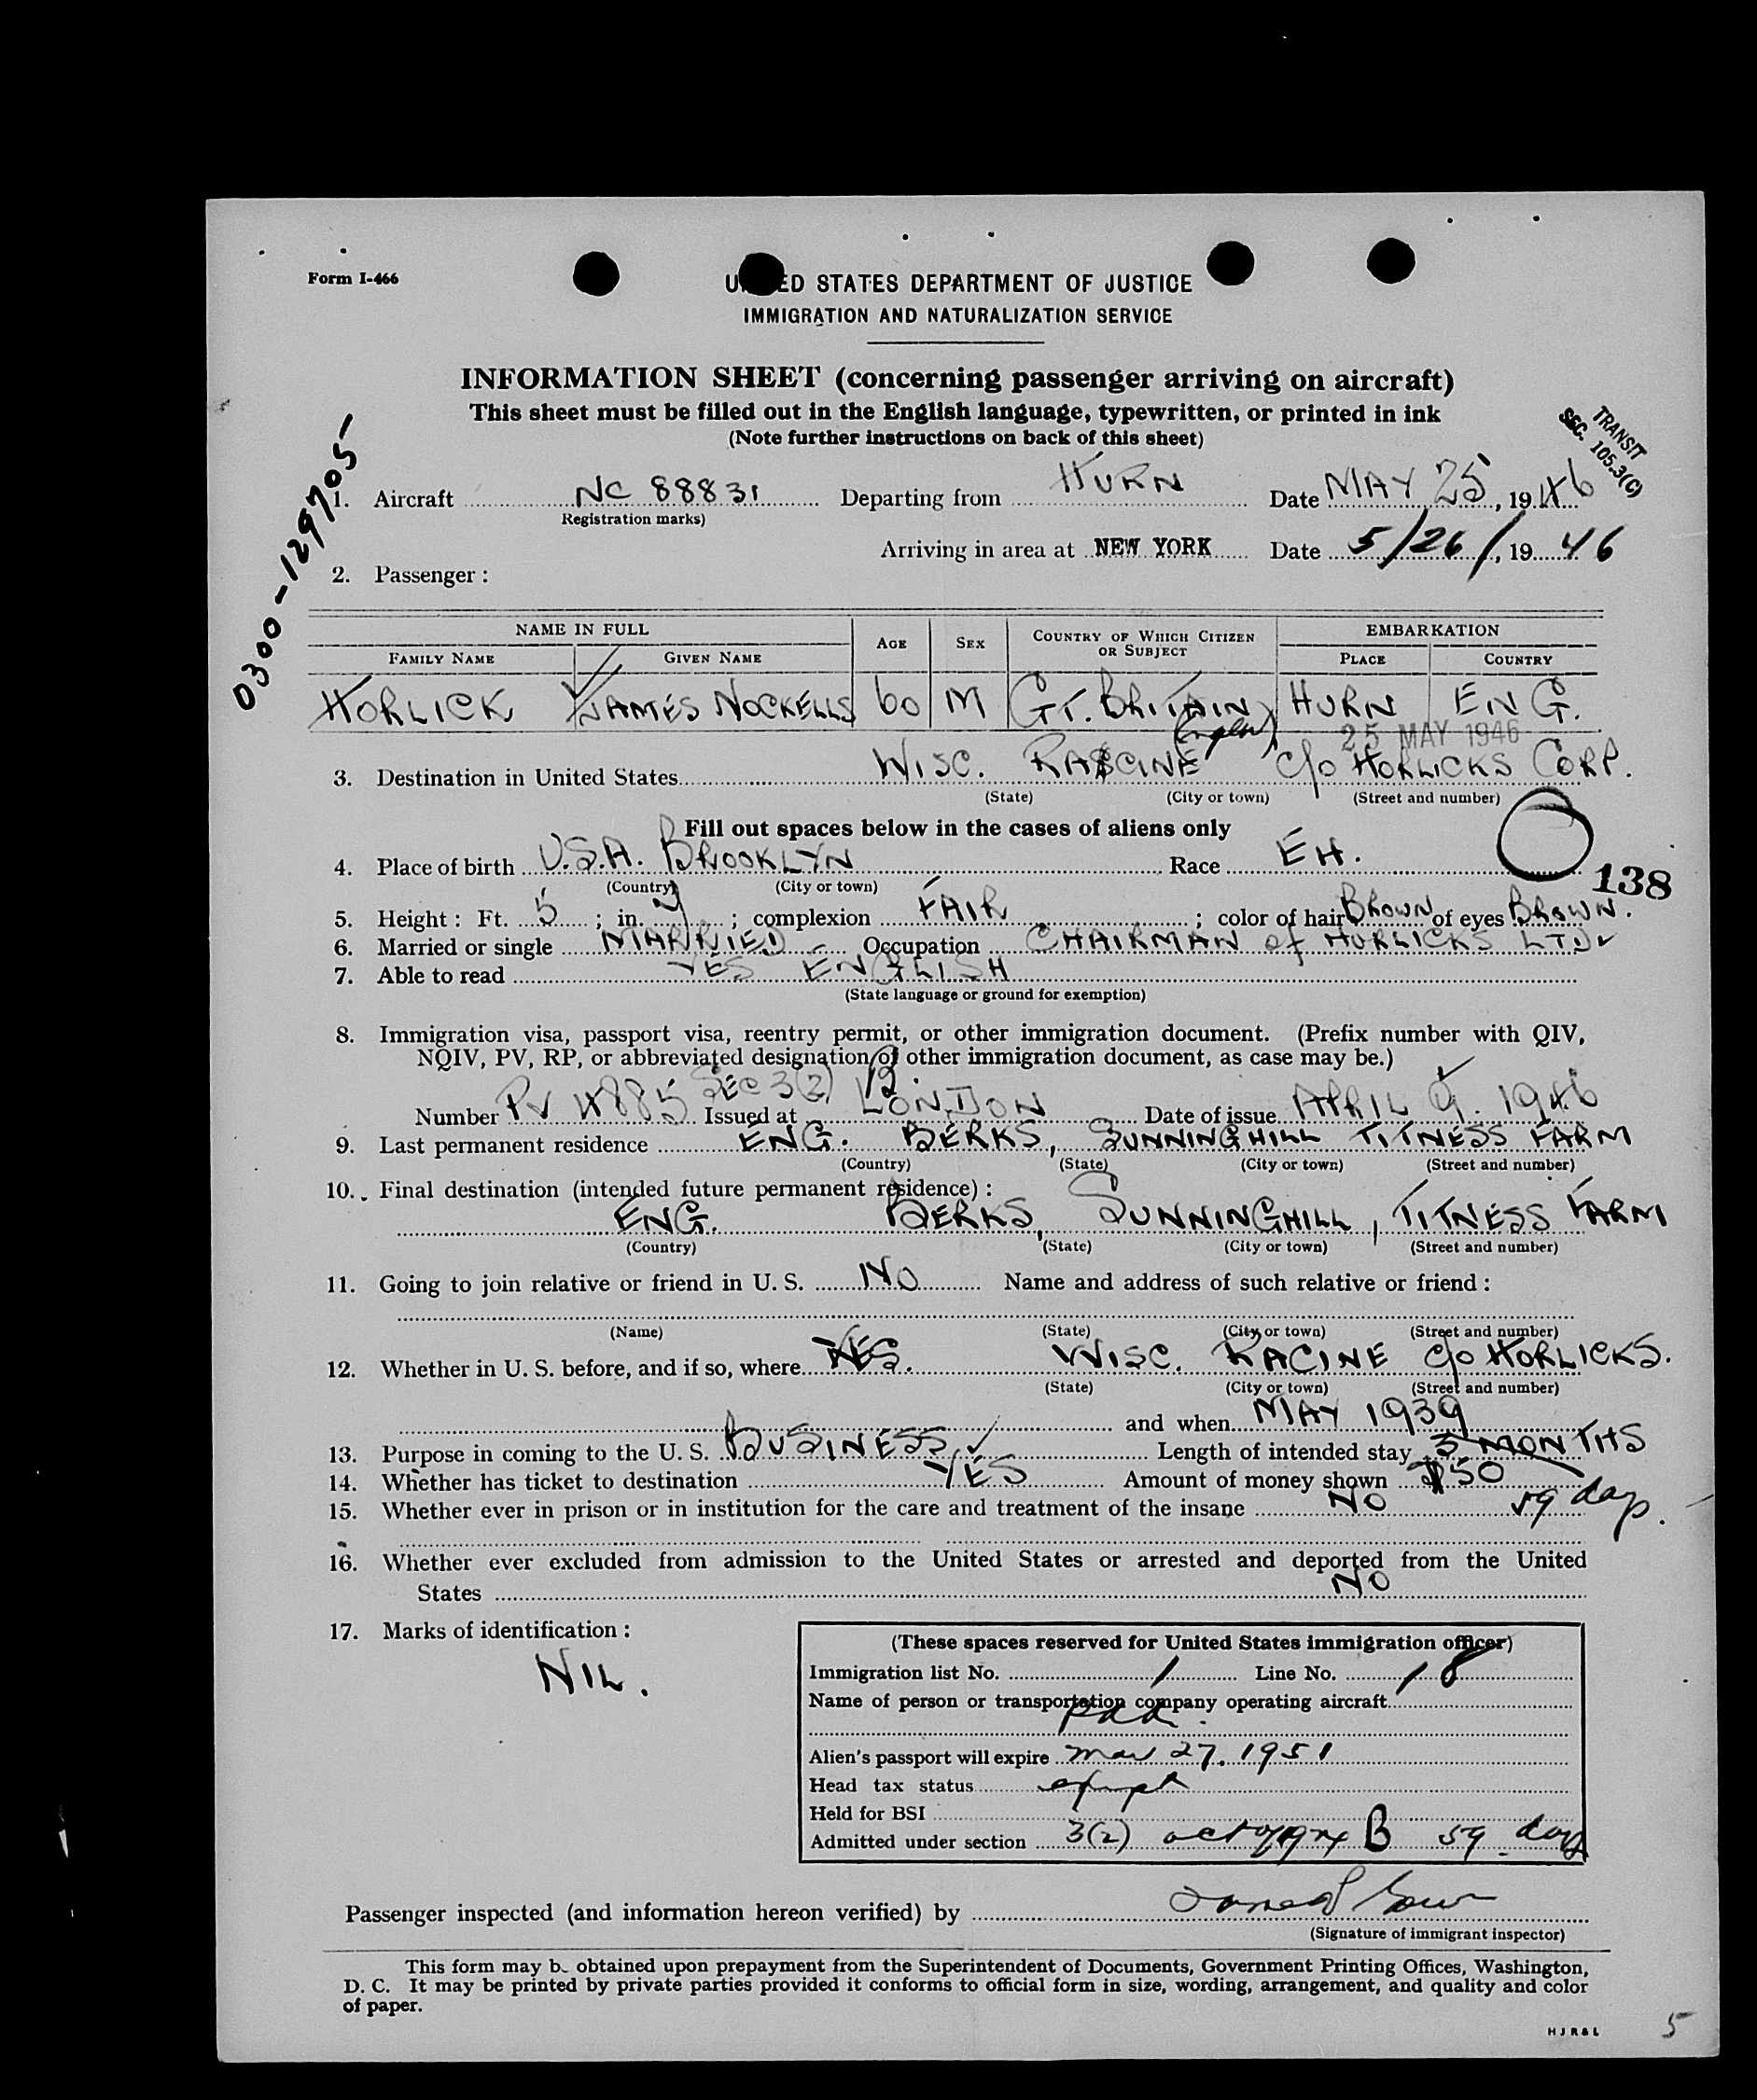 Form I-466
UNITED STATES DEPARTMENT OF JUSTICE
IMMIGRATION AND NATURALIZATION SERVICE
INFORMATION SHEET (concerning passenger arriving on aircraft)
This sheet must be filled out in the English language, typewritten, or printed in ink
(Note further instructions on back of this sheet)
TRANSIT
SEC. 105.3(C)
0300-129705-
1. Aircraft NC 88831 Departing from HURN Date MAY 25, 1946
(Registration marks)
Arriving in area at NEW YORK Date 5/26/, 1946
2. Passenger:
NAME IN FULL AGE SEX COUNTRY OF WHICH CITIZEN OR SUBJECT EMBARKATION
FAMILY NAME GIVEN NAME PLACE COUNTRY
HORLICK JAMES NOCKELLS 60 M GT. BRITAIN HURN ENG.
25 MAY 1946
3. Destination in United States WISC. RACINE c/o HORLICKS CORP.
(State) (City or town) (Street and number)
Fill out spaces below in the cases of aliens only
4. Place of birth U.S.A. BROOKLYN Race EH.
(Country) (City or town)
138
5. Height: Ft. 5; in. 9; complexion FAIR; color of hair BROWN of eyes BROWN.
6. Married or single MARRIED Occupation CHAIRMAN of HORLICKS LTD
7. Able to read YES ENGLISH
(State language or ground for exemption)
8. Immigration visa, passport visa, reentry permit, or other immigration document. (Prefix number with QIV,
NQIV, PV, RP, or abbreviated designation of other immigration document, as case may be.)
SEC 3(2) B.
Number PV 4885 Issued at LONDON Date of issue APRIL 9. 1946
9. Last permanent residence ENG. BERKS, SUNNINGHILL TITNESS FARM
(Country) (State) (City or town) (Street and number)
10. Final destination (intended future permanent residence):
ENG. BERKS, SUNNINGHILL, TITNESS FARM
(Country) (State) (City or town) (Street and number)
11. Going to join relative or friend in U. S. NO Name and address of such relative or friend:
(Name) (State) (City or town) (Street and number)
12. Whether in U. S. before, and if so, where YES. WISC. RACINE c/o HORLICKS.
(State) (City or town) (Street and number)
and when MAY 1939
13. Purpose in coming to the U. S. BUSINESS Length of intended stay 3 MONTHS
14. Whether has ticket to destination YES Amount of money shown $50
15. Whether ever in prison or in institution for the care and treatment of the insane NO 59 days.
16. Whether ever excluded from admission to the United States or arrested and deported from the United
States NO
17. Marks of identification:
NIL.
(These spaces reserved for United States immigration officer)
Immigration list No. 1 Line No. 18
Name of person or transportation company operating aircraft
PAA.
Alien's passport will expire Mar 27, 1951
Head tax status exempt
Held for BSI
Admitted under section 3(2) act of 1924 B 59 days
Passenger inspected (and information hereon verified) by
(Signature of immigrant inspector)
This form may be obtained upon prepayment from the Superintendent of Documents, Government Printing Offices, Washington,
D. C. It may be printed by private parties provided it conforms to official form in size, wording, arrangement, and quality and color
of paper.
HJR&L
5